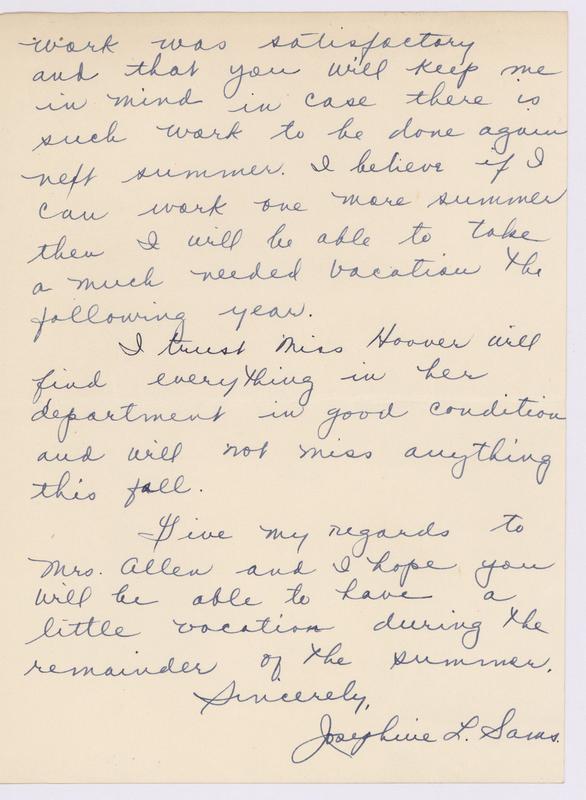 work was satisfactory
and that you will keep me
in mind in case there is
such work to be done again
next summer. I believe if I
can work one more summer
then I will be able to take
a much needed vacation the
following year.
I trust Miss Hoover will
find everything in her
department in good condition
and will not miss anything
this fall.
Give my regards to
Mrs. Allen and I hope you
will be able to have a
little vacation during the
remainder of the summer.
Sincerely,
Josephine L. Sams.